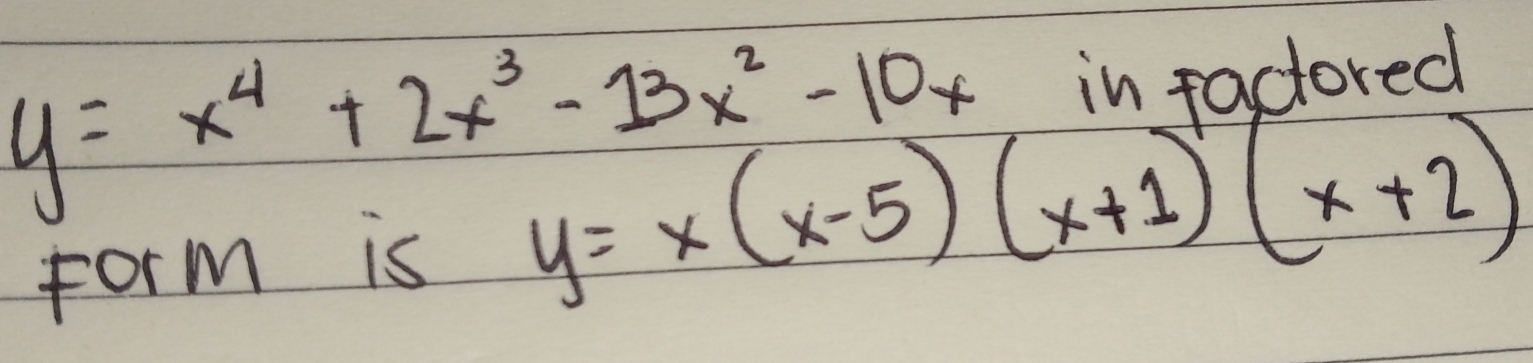 y = x⁴ + 2x³ - 13x² - 10x in factored
form is y = x(x-5)(x+1)(x+2)